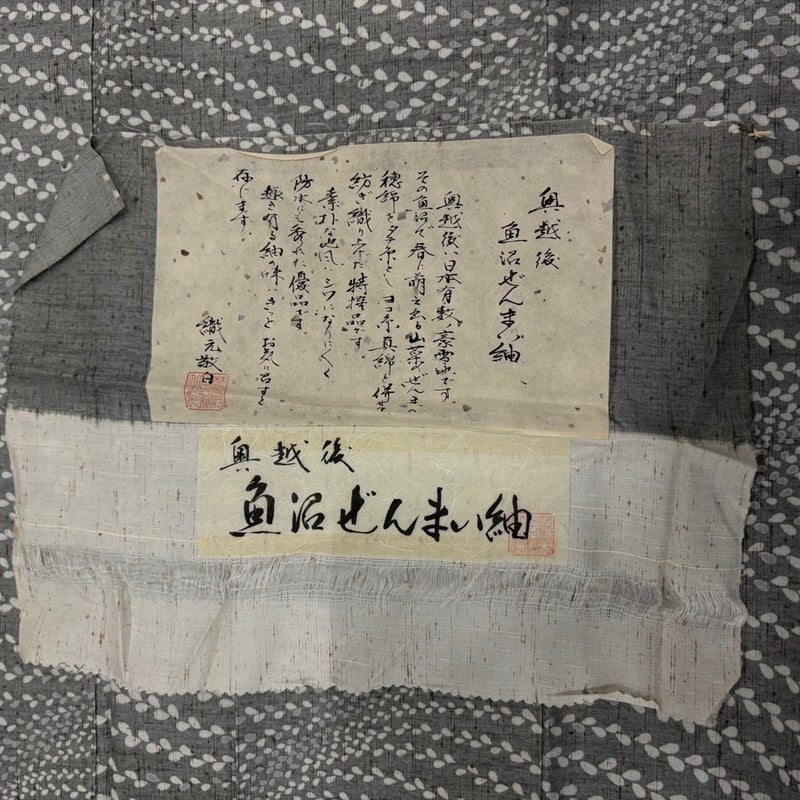 奥越後
魚沼ぜんまい紬
奥越後は日本有数の豪雪地です。
その魚沼で春に萌え出る山菜のぜんまいの
穂綿をタテ糸とし ヨコ糸真綿を併せ
紡ぎ織り上げた特撰品です
素朴な地風は シワになりにくく
防水にも秀れた優品です。
趣き有る紬の味は きっと お気に召すと
存じます。
織元敬白
奥越後
魚沼ぜんまい紬